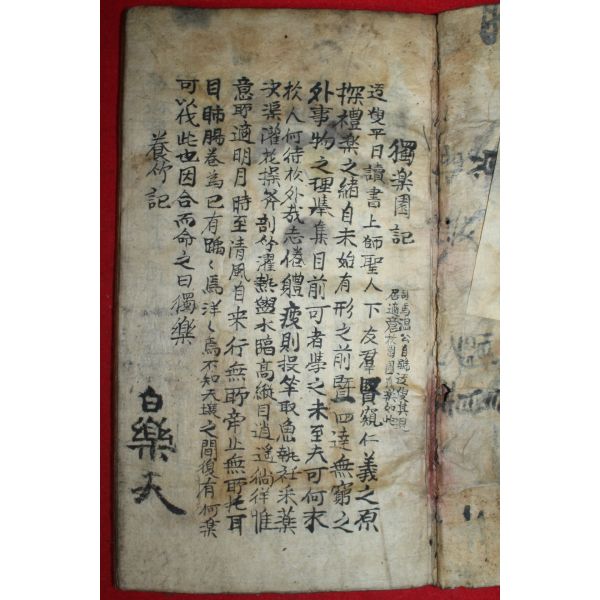 獨楽園記
司馬溫公自號迂叟其
居適意於
迂叟平日讀書上師聖人下友羣賢窺仁義之原
探禮楽之緒自未始有形之前暨四達無窮之
外事物之理擧集目前可者學之未至夫可何求
於人何待於外哉志倦體疲則投竿取魚執衽采藥
决渠灌花操斧剖竹濯熱盥水臨高縱目逍遙徜徉惟
意所適明月時至清風自来行無所牽止無所柅耳
目肺腸卷為已有踽〻焉洋〻焉不知天壤之間復有何楽
可以伐此也因合而命之曰獨樂
養竹記
白樂天